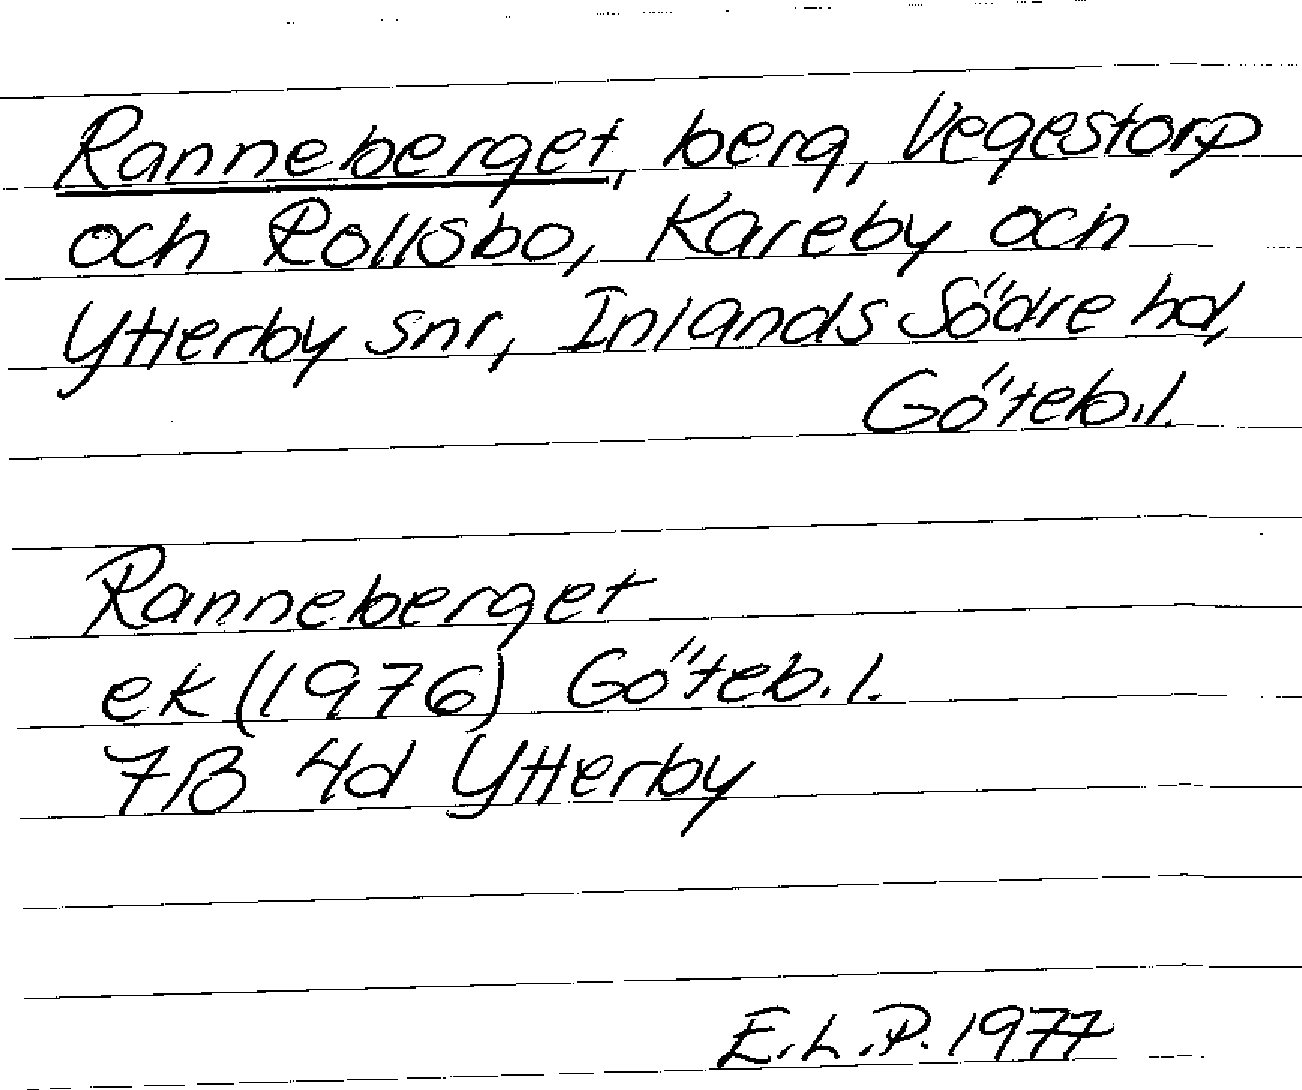 Ranneberget, berg, Vegestorp
och Rollsbo, Kareby och
Ytterby snr, Inlands Södre hd,
Göteb.l.
Ranneberget
ek (1976) Göteb.l.
7B 4d Ytterby
E.L.P. 1977